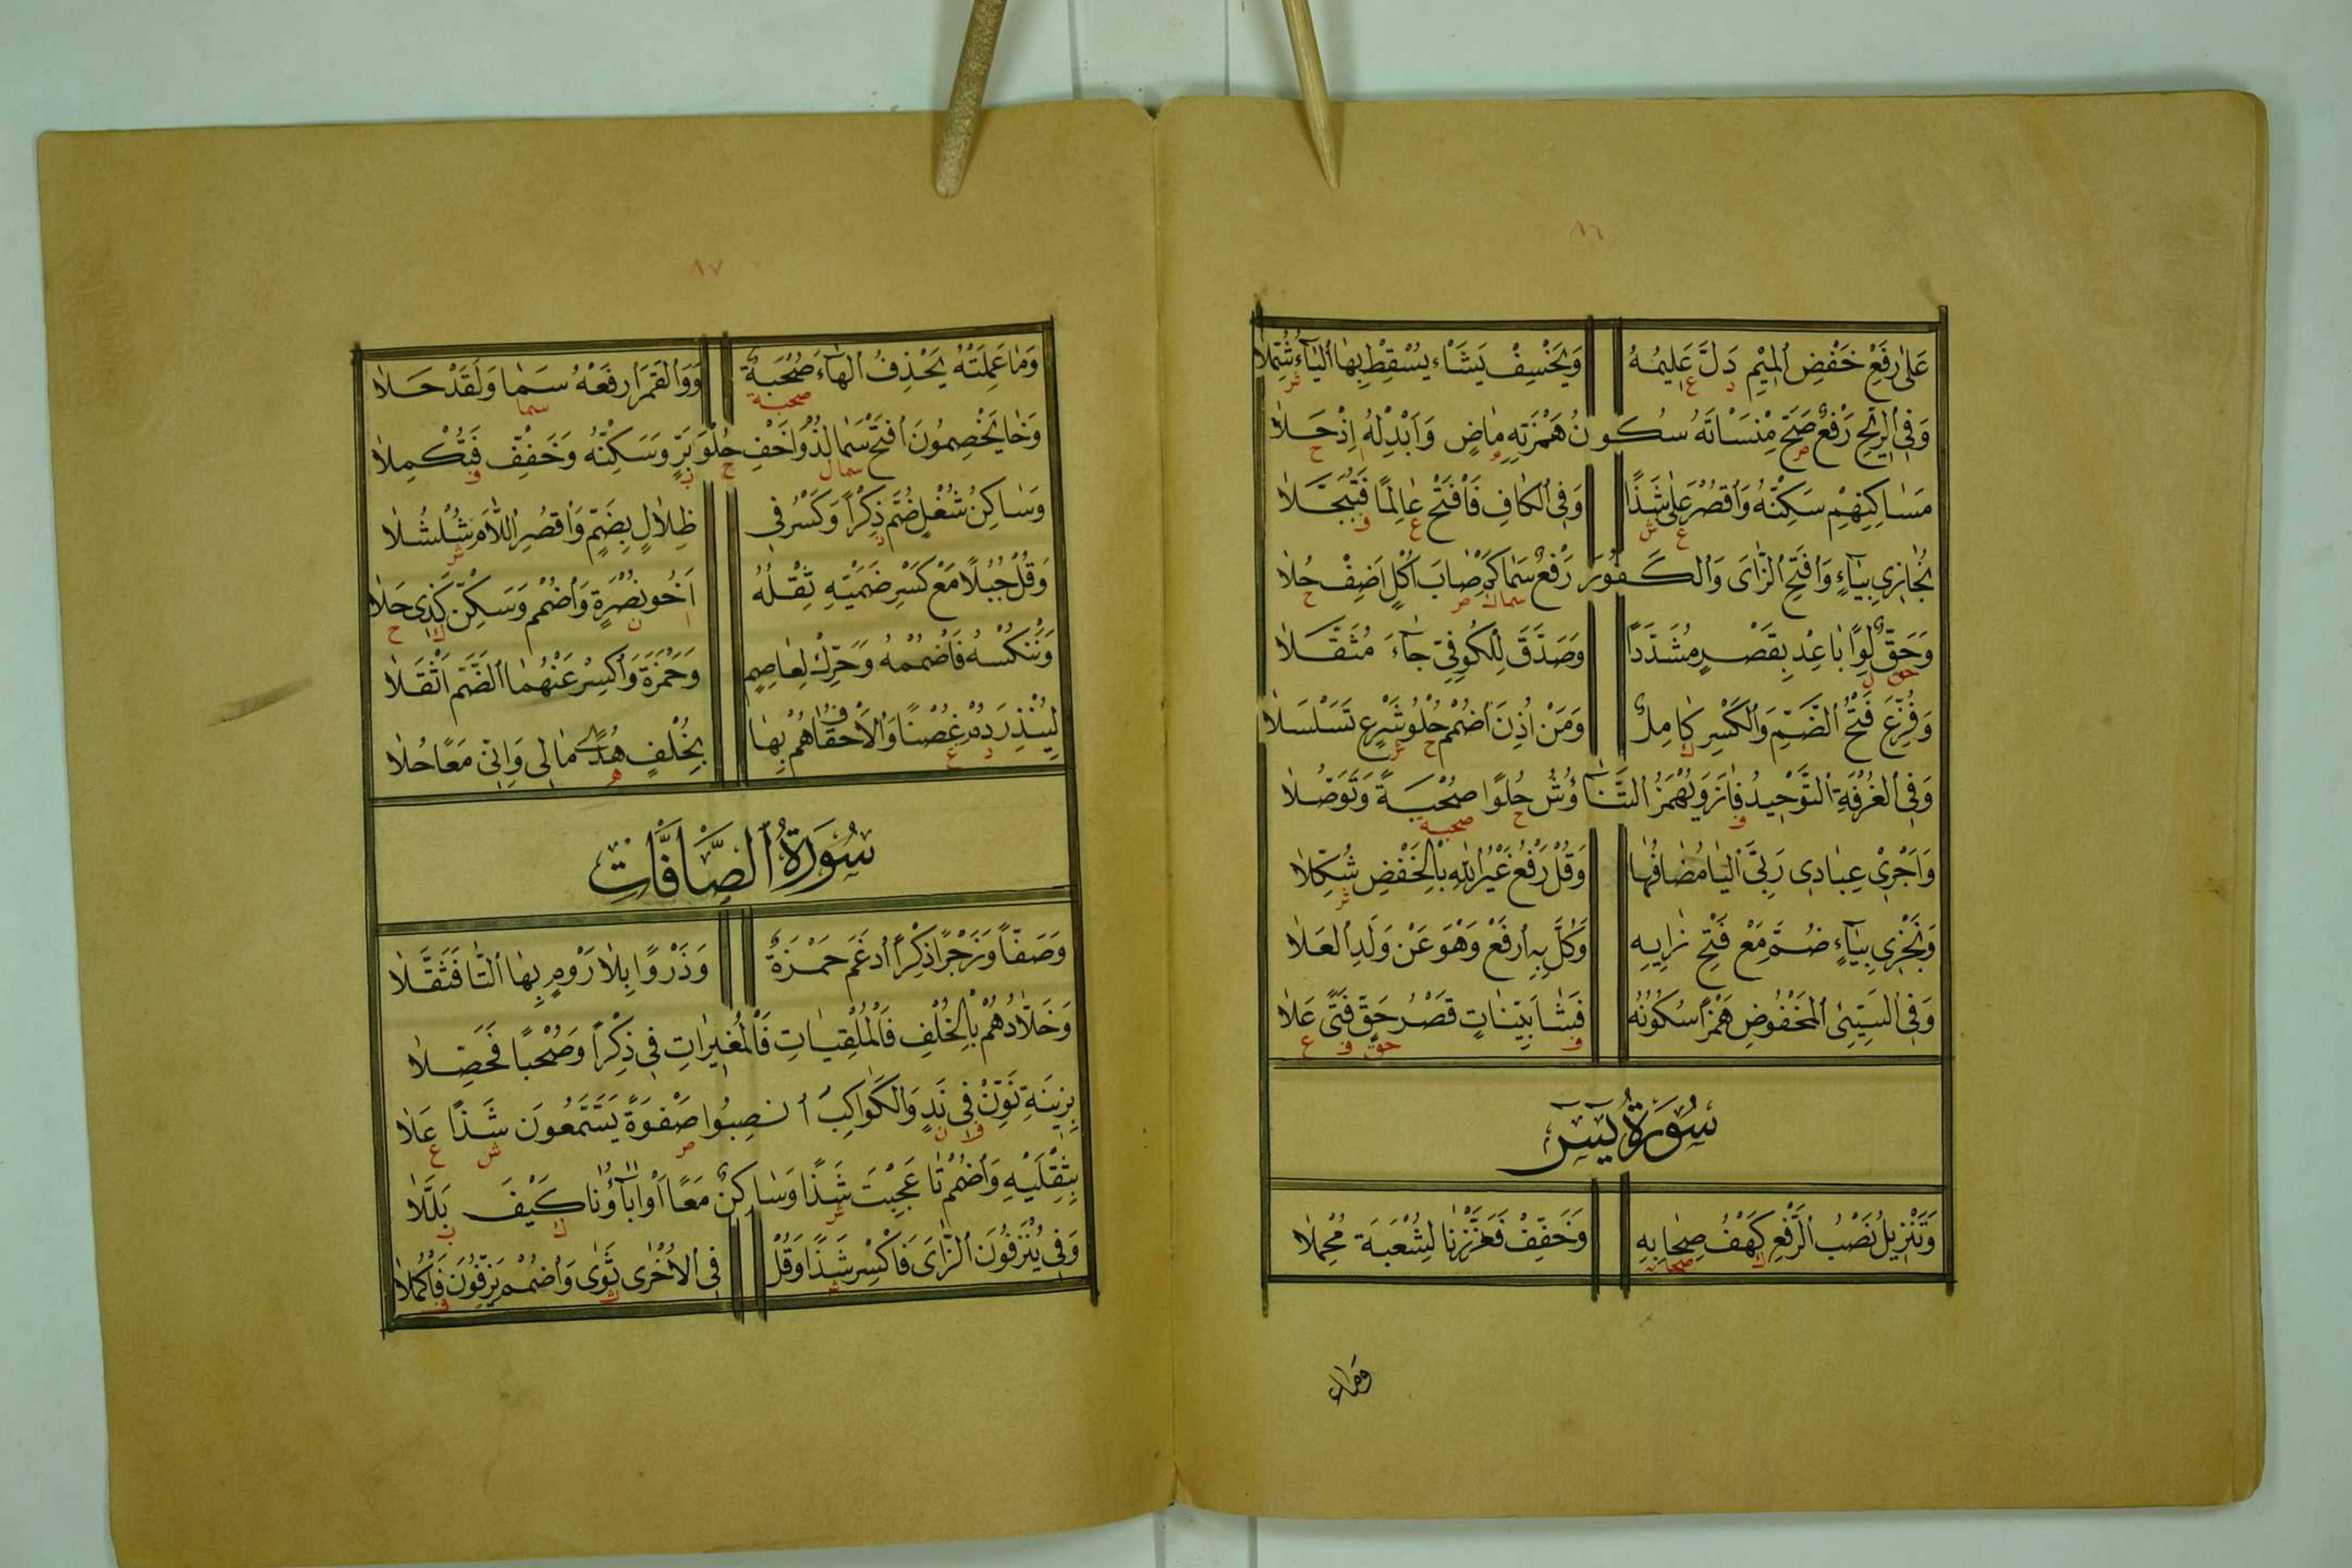 ٨٦
عَلٰى رَفْعِ خَفْضِ الْمِيْمِ دَلَّ عَلِيْمُهُ وَيَخْسِفْ يَشَاْء يُسْقِطْ بِهٰا الْيٰاۤءُ شُمِّلاٰ
د ع ش
وَفِى الرِّيْحِ رَفْعٌ صَحَّ مِنْسَاْتَهُ سُكُونُ هَمْزَتِهِ مٰاضٍ وَاَبْدِلْهُ اِذْ حَلاٰ
ص م ا ح
مَسٰاكِنِهِمْ سَكِّنْهُ وَاقْصُرْ عَلٰى شَذًا وَفِى الْكٰافِ فَافْتَحْ عٰالِمًا فَتُبَجَّلاٰ
ع ش ع ف
نُجٰازِى بِيٰاۤءٍ وَافْتَحِ الزّٰاىَ وَالْكَفُوْرَ رَفْعٌ سَمٰا كَمْ صٰابَ اُكْلٍ اَضِفْ حُلاٰ
سما ك ص ح
وَحَقُّ لِوًا بٰاعِدْ بِقَصْرٍ مُشَدَّدًا وَصَدَّقَ لِلْكُوفِىِّ جٰاۤءَ مُثَقَّلاٰ
حق ل
وَفُزِّعَ فَتْحُ الضَّمِّ وَالْكَسْرِ كٰامِلٌ وَمَنْ اُذِنَ اضْمُمْ حُلْوُ شَرْعٍ تَسَلْسَلاٰ
ك ح ش
وَفِى الْغُرْفَةِ التَّوْحِيدُ فٰازَ وَيُهْمَزُ التَّنٰاۤؤُشُ حُلْوًا صُحْبَةً وَتَوَصُّلاٰ
ف ح صحبه
وَاَجْرِىْ عِبٰادِى رَبِّىَ الْيٰا مُضٰافُهٰا وَقُلْ رَفْعُ غَيْرُ اللّٰهِ بِالْخَفْضِ شُكِّلاٰ
ش
وَنَجْزِى بِيٰاۤءٍ ضُمَّ مَعْ فَتْحِ زٰايِهِ وَكُلَّ بِهِ ارْفَعْ وَهْوَ عَنْ وَلَدِ الْعَلاٰ
وَفِى السَّيِّئِ الْمَخْفُوضِ هَمْزًا سُكُوْنُهُ فَشٰا بَيِّنٰاتٍ قَصْرُ حَقٍّ فَتًى عَلاٰ
ف حق ف ع
سُوْرَةُ يٰسۤ
وَتَنْزِيلُ نَصْبُ الرَّفْعِ كَهْفُ صِحٰابِهِ وَخَفِّفْ فَعَزَّزْنٰا لِشُعْبَةَ مُحْمِلاٰ
ك صحابه
وَمٰا
٨٧
وَمٰا عَمِلَتْهُ يَحْذِفُ الْهٰاۤءَ صُحْبَةٌ وَوَالْقَمَرَ ارْفَعْهُ سَمٰا وَلَقَدْ حَلاٰ
صحبة سما
وَخٰا يَخْصِمُونَ افْتَحْ سَمٰا لُذْ وَاَخْفِ حُلْوَ بَرٍّ وَسَكِّنْهُ وَخَفِّفْ فَتُكْمِلاٰ
سما ل ح ب ف
وَسٰاكِنُ شُغْلٍ ضُمَّ ذِكْرًا وَكَسْرُ فِى ظِلاٰلٍ بِضَمٍّ وَاقْصُرِ اللّٰامَ شُلْشُلاٰ
ذ ش
وَقُلْ جُبُلًا مَعْ كَسْرِ ضَمَّيْهِ ثِقْلُهُ اَخُو نُصْرَةٍ وَاضْمُمْ وَسَكِّنْ كَذِى حَلاٰ
ا ن ك ح
وَنَنْكُسْهُ فَاضْمُمْهُ وَحَرِّكْ لِعٰاصِمٍ وَحَمْزَةَ وَاكْسِرْ عَنْهُمٰا الضَّمَّ اَثْقَلاٰ
لِيُنْذِرَ دُمْ غُصْنًا وَالْاَحْقٰافُ هُمْ بِهٰا بِخُلْفٍ هُدًى مٰالِى وَاِنِّى مَعًا حُلاٰ
د ع ه
سُوْرَةُ الصَّافَّاتِ
وَصَفًّا وَزَجْرًا ذِكْرًا ادْغَمَ حَمْزَةٌ وَذَرْوًا بِلاٰ رَوْمٍ بِهٰا التّٰا فَثَقَّلاٰ
وَخَلاّٰدُهُمْ بِالْخُلْفِ فَالْمُلْقِيٰاتِ فَالْمُغِيرٰاتِ فِى ذِكْرًا وَصُبْحًا فَحَصِّلاٰ
بِزِينَةِ نَوِّنْ فِى نَدٍ وَالْكَوٰاكِبَ انْصِبُوا صَفْوَةً يَسَّمَّعُونَ شَذًا عَلاٰ
ف ن ص ش ع
بِثِقْلَيْهِ وَاضْمُمْ تٰا عَجِبْتَ شَذًا وَسٰاكِنٌ مَعًا اَوْاٰبٰاۤؤُنٰا كَيْفَ بَلَّلاٰ
ش ك ب
وَفِى يُنْزَفُونَ الزّٰاىَ فَاكْسِرْ شَذًا وَقُلْ فِى الْاُخْرٰى ثَوٰى وَاضْمُمْ يَزِفُّونَ فَاكْمُلاٰ
ش ث ف